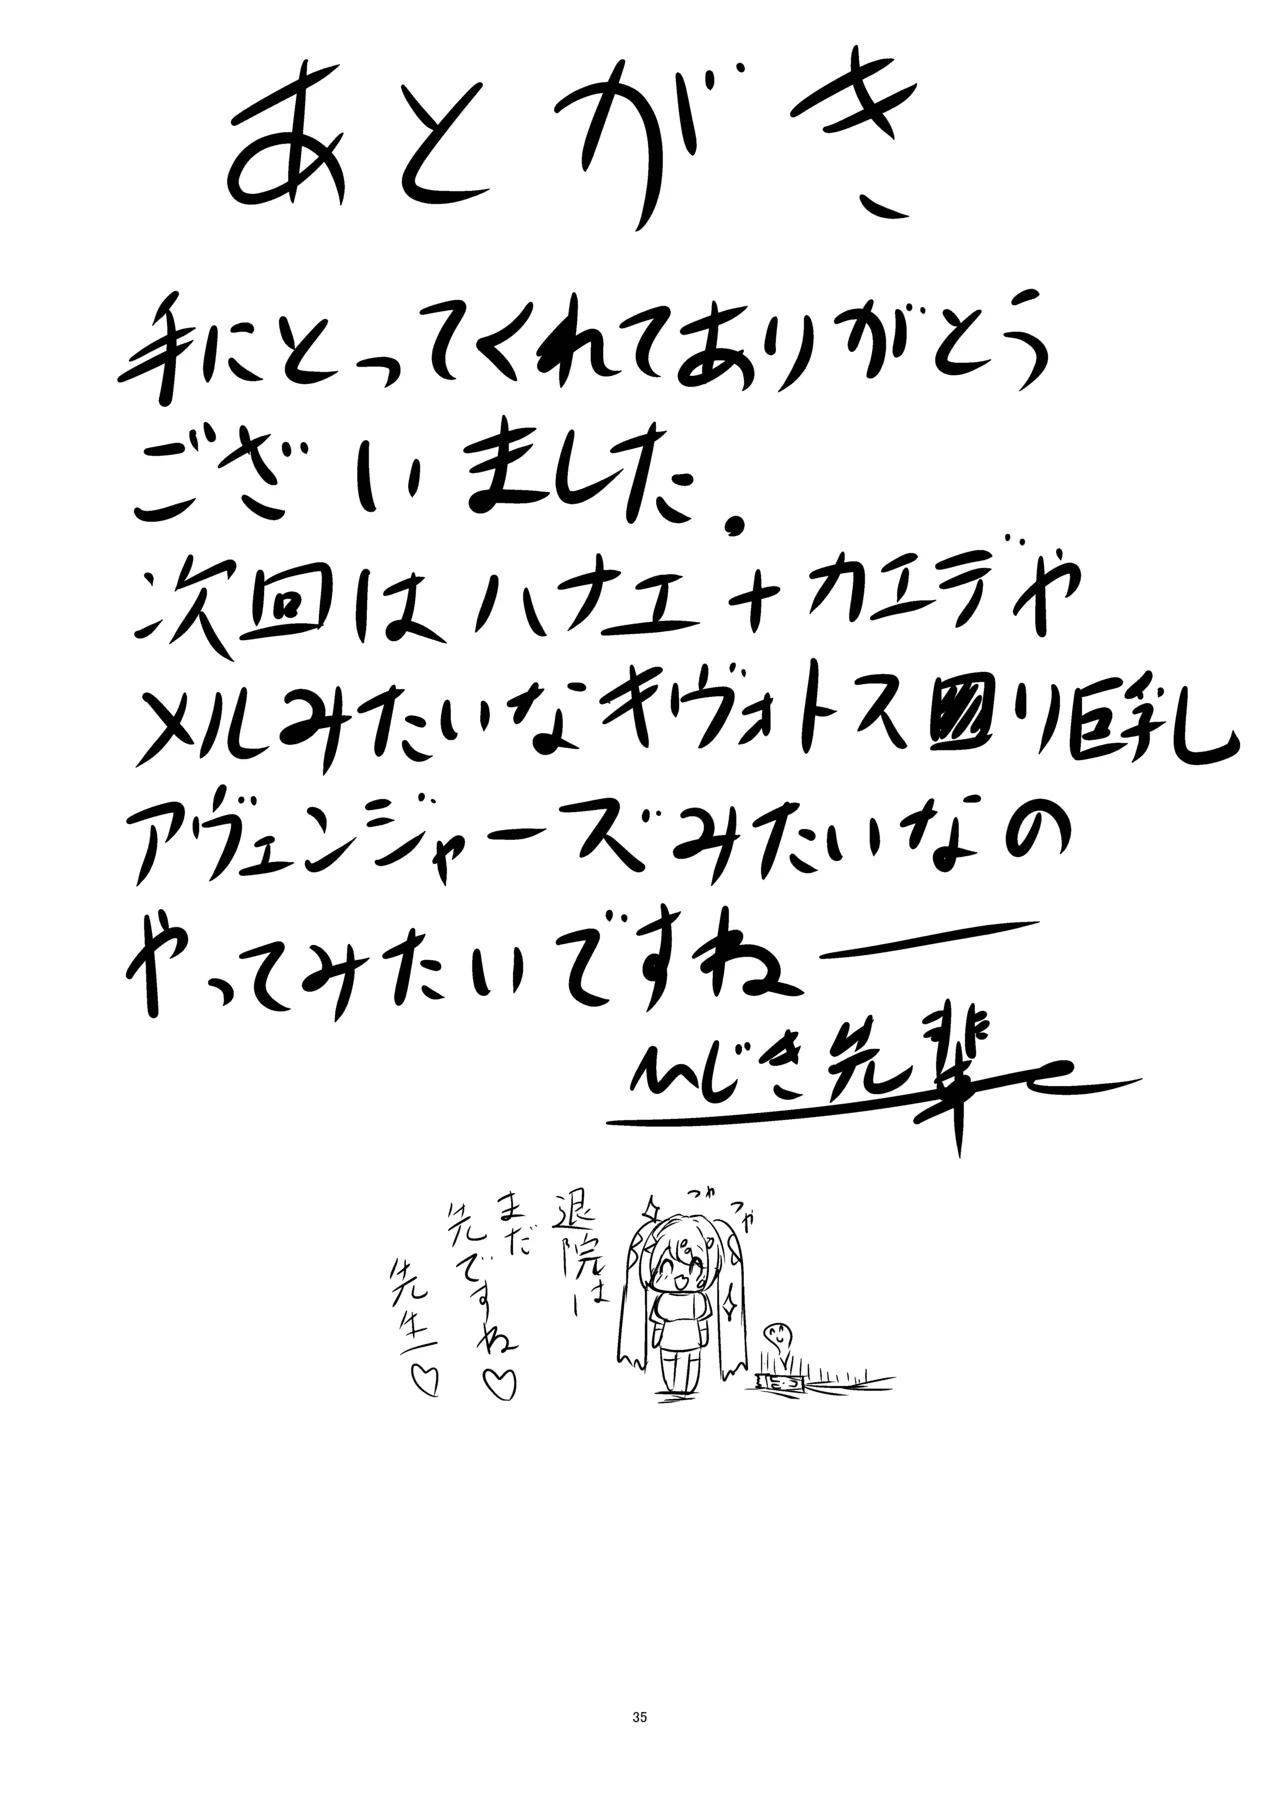 あとがき
手にとってくれてありがとう
ございました.
次回はハナエ+カエデや
メルみたいなキヴォトス り巨乳
アヴェンジャーズみたいなの
やってみたいですねー
ひじき先輩
つや
つや
退院は
まだ
先ですね♡
先生♡
35